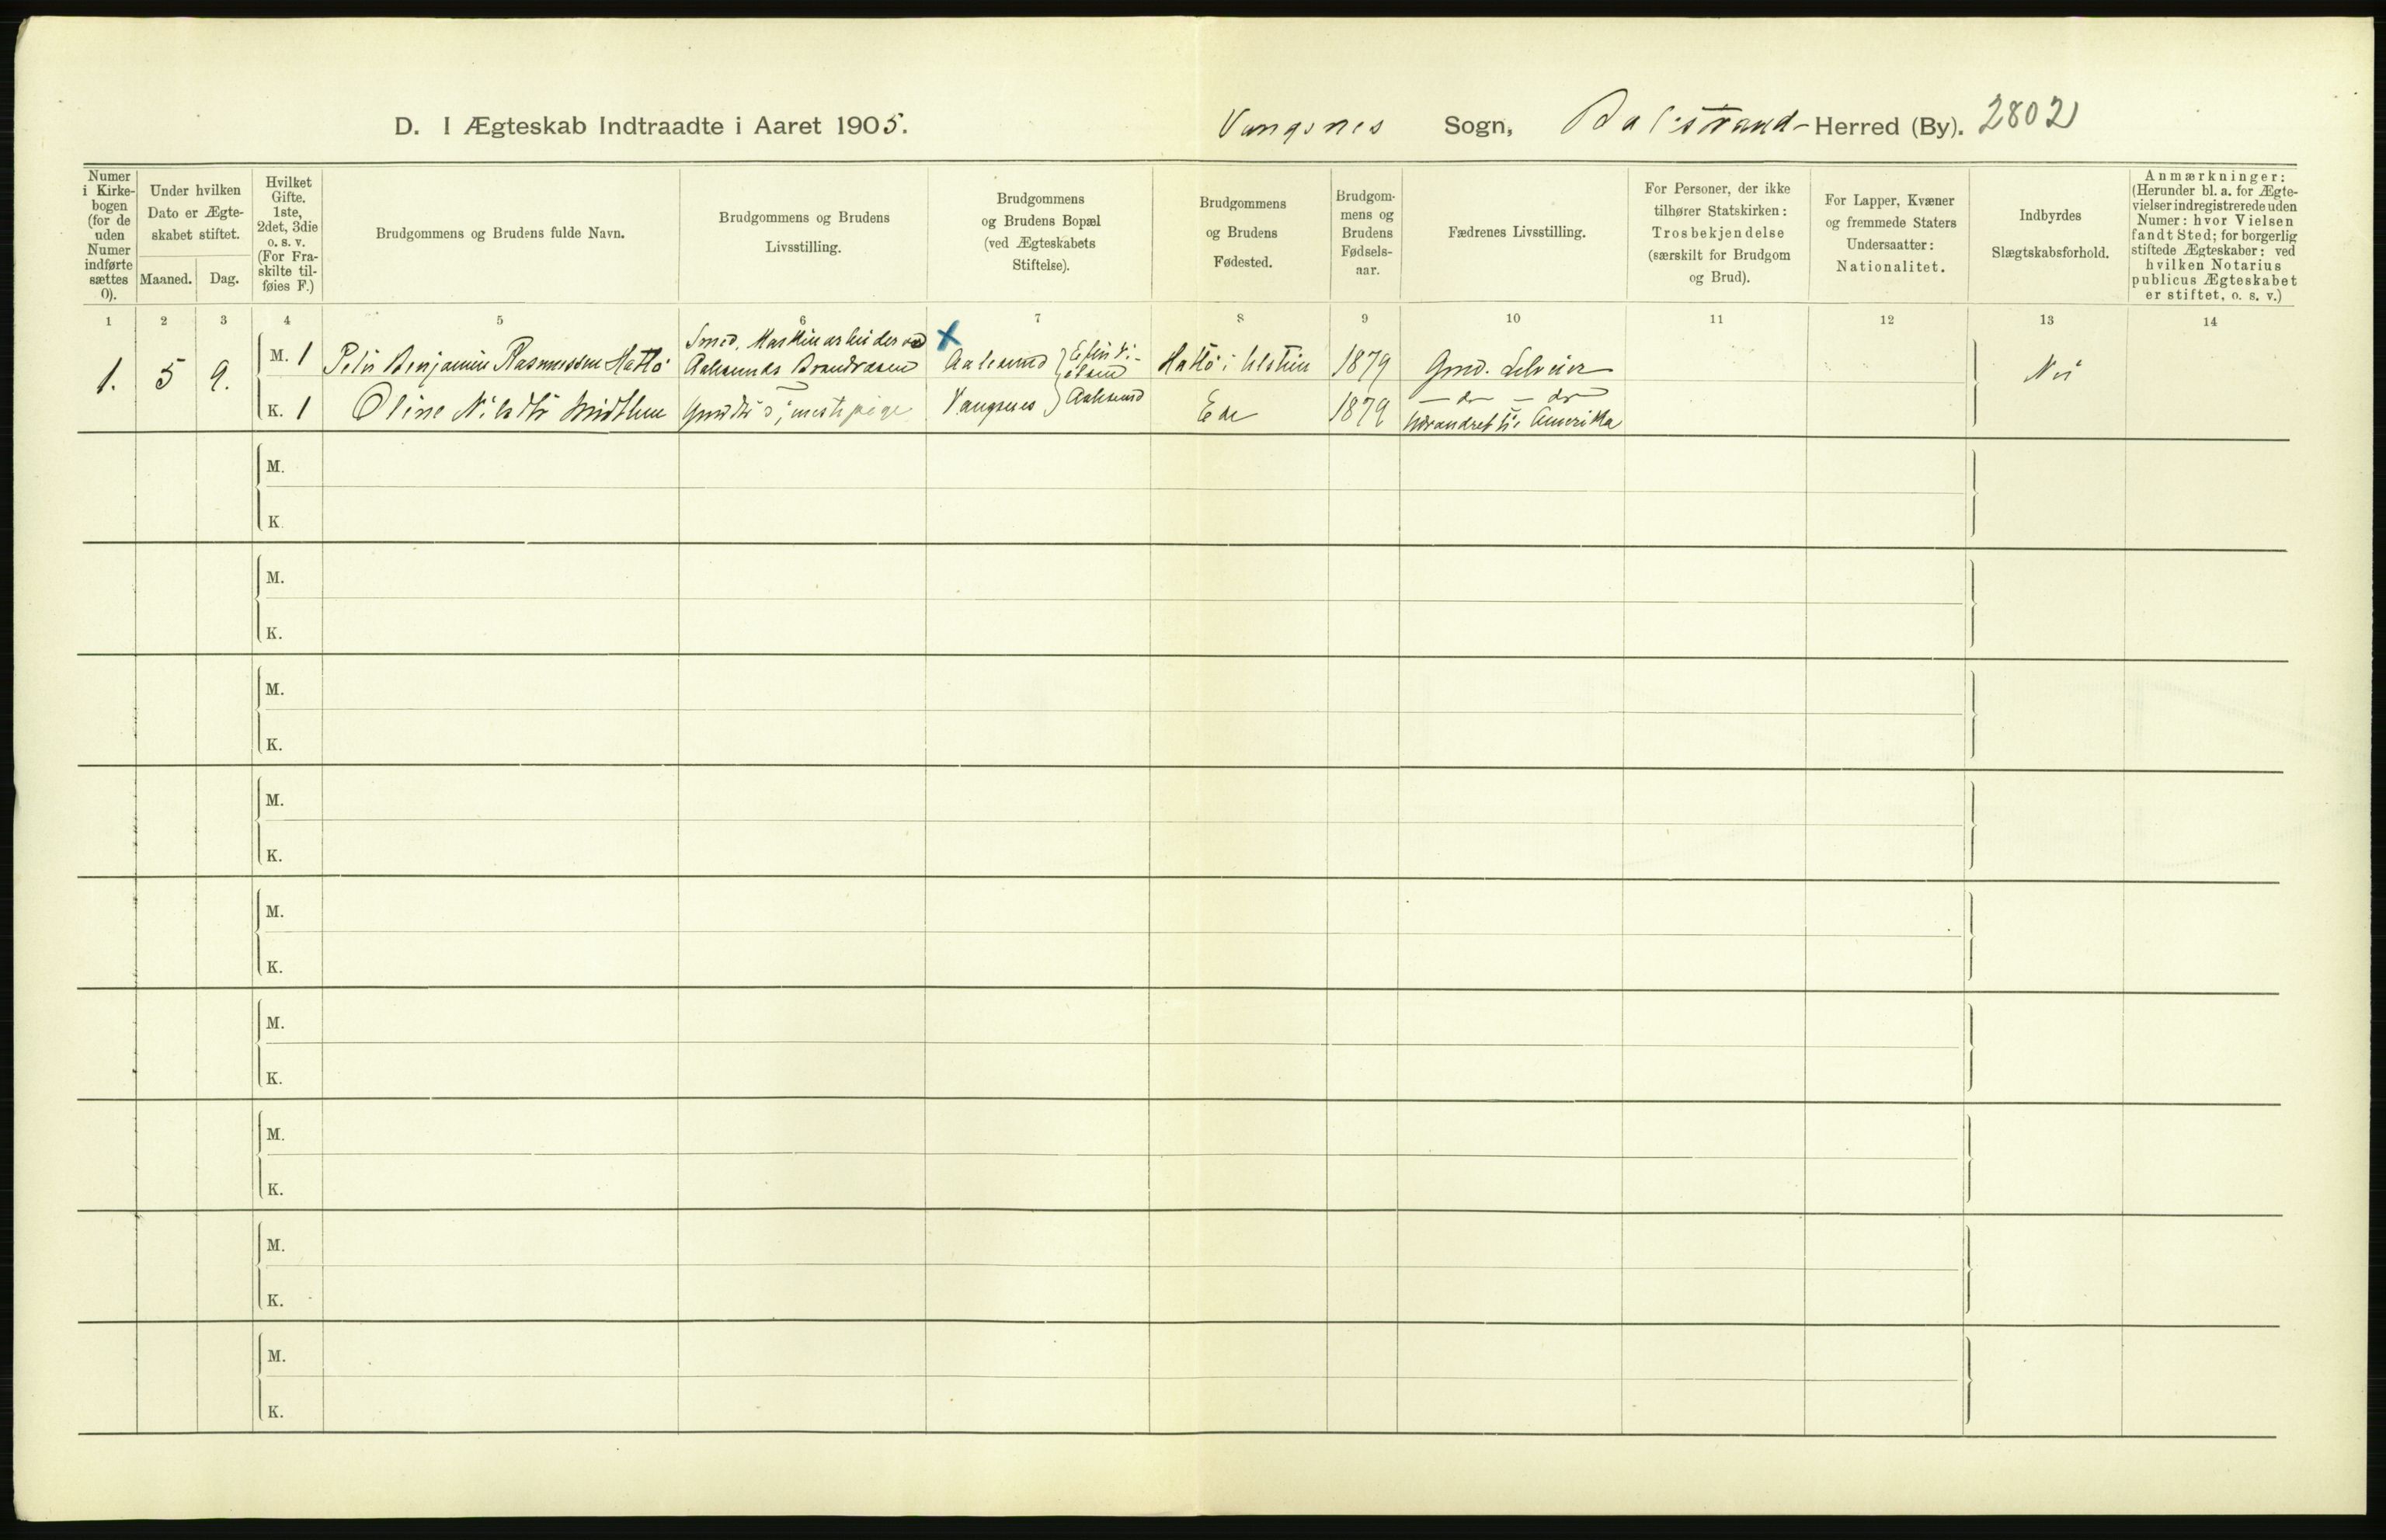 D. I Ægteskab Indtraadte i Aaret 1905. Vangsnes Sogn, Balestrand Herred (By). 2802
Numer
i Kirke-
bogen
(for de
uden
Numer
indførte
sættes
0).
Under hvilken
Dato er Ægte-
skabet stiftet.
Maaned. Dag.
Hvilket
Gifte.
1ste,
2det, 3die
o. s. v.
(For Fra-
skilte til-
føies F.)
Brudgommens og Brudens fulde Navn.
Brudgommens og Brudens
Livsstilling.
Brudgommens
og Brudens Bopæl
(ved Ægteskabets
Stiftelse).
Brudgommens
og Brudens
Fødested.
Brudgom-
mens og
Brudens
Fødsels-
aar.
Fædrenes Livsstilling.
For Personer, der ikke
tilhører Statskirken:
Trosbekjendelse
(særskilt for Brudgom
og Brud).
For Lapper, Kvæner
og fremmede Staters
Undersaatter:
Nationalitet.
Indbyrdes
Slægtskabsforhold.
Anmærkninger:
(Herunder bl. a. for Ægte-
vielser indregistrerede uden
Numer: hvor Vielsen
fandt Sted; for borgerlig
stiftede Ægteskaber: ved
hvilken Notarius
publicus Ægteskabet
er stiftet, o. s. v.)
1 2 3 4 5 6 7 8 9 10 11 12 13 14
Smed, Maskinarbeider ved
1. 5 9. M. 1 Peter Benjamin Rasmussen Hattø Aalesunds Aalesund Hattø i Ulsten 1879 Gmd. Selveier Nei
K. 1 Oline Nilsdtr Midtlun Vangsnes Aalesund Ese 1879 — do — do
Udvandret til Amerika
M.
K
M.
K.
M.
K.
M.
K.
M.
K.
M.
K.
M.
K.
M.
K.
M.
K.